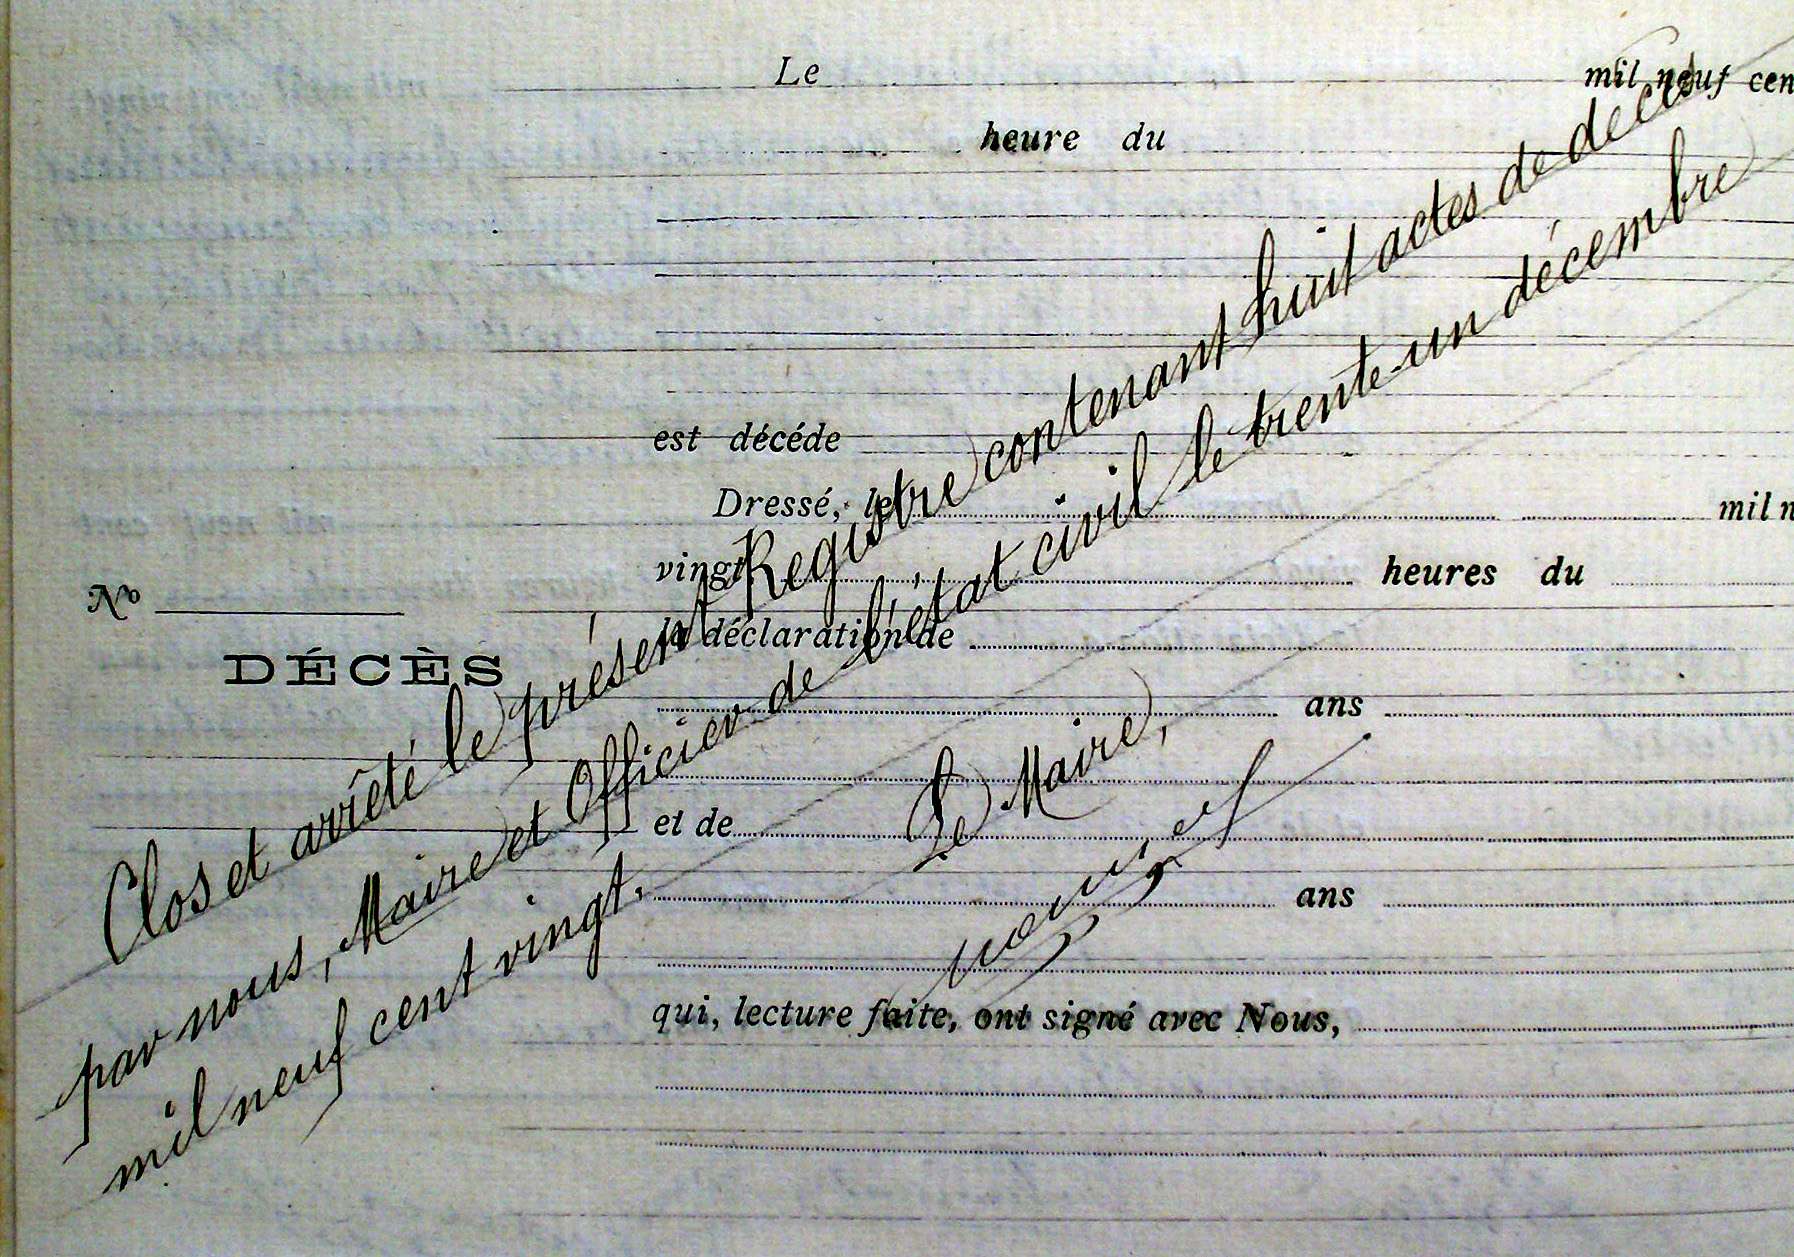 Le mil neuf cen
heure du
est décéde
Dressé, le mil n
vingt heures du
No
la déclaration de
DÉCÈS
ans
et de
ans
qui, lecture faite, ont signé avec Nous,
Clos et arrêté le présent Registre contenant huit actes de décès
par nous, Maire et Officier de l'état civil le trente-un décembre
mil neuf cent vingt.
Le Maire,